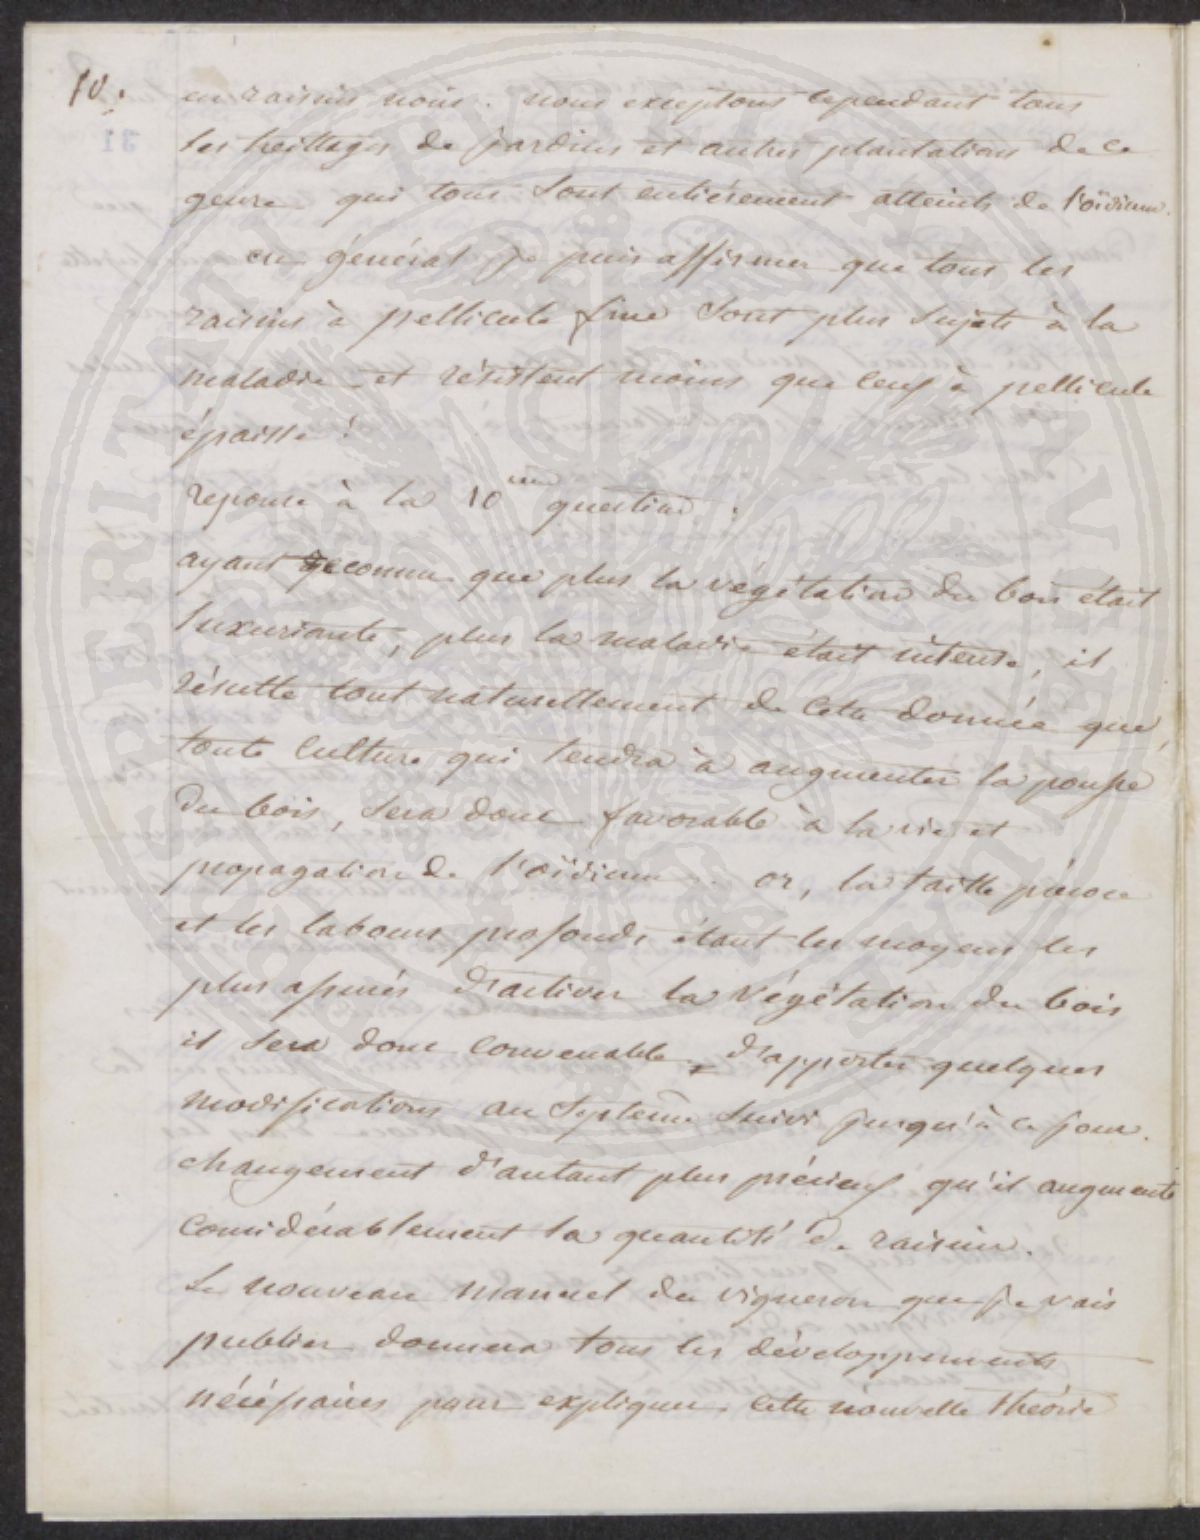 10.
en raisins noirs. nous exceptons cependant tous
les treillages de jardins et autres plantations de ce
genre qui tous sont entièrement atteints de l'oïdium.
en général je puis affirmer que tous les
raisins à pellicule fine sont plus sujets à la
maladie et résistent moins que ceux à pellicule
épaisse!
reponse à la 10ème question.
ayant reconnu que plus la végétation du bois était
luxuriante, plus la maladie était intense, il
résulte tout naturellement de cette donnée que,
toute culture qui tendra à augmenter la pousse
du bois, sera donc favorable à la vie et
propagation de l'oïdium. or, la taille précoce
et les labours profonds étant les moyens les
plus assurés d'activer la végétation du bois
il sera donc convenable d'apporter quelques
modifications au système suivi jusqu'à ce jour.
changement d'autant plus précieux qu'il augmente
considérablement la quantité de raisin.
Le nouveau manuel du vigneron que je vais
publier donnera tous les développements
nécessaires pour expliquer cette nouvelle théorie